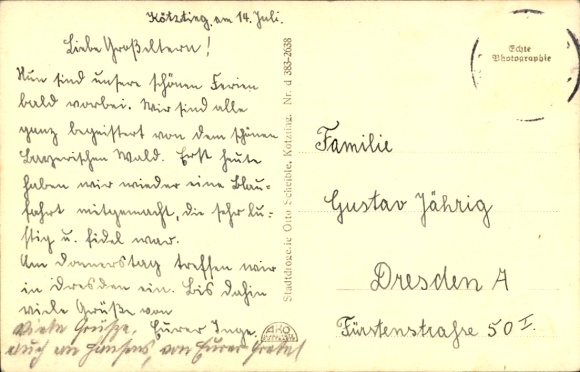 Kötzting, am 14. Juli.
Liebe Großeltern!
Nun sind unsere schönen Ferien
bald vorbei. Wir sind alle
ganz begeistert von dem schönen
Bayerischen Wald. Erst heute
haben wir wieder eine Blau-
fahrt mitgemacht, die sehr lu-
stig u. fidel war.
Am Donnerstag treffen wir
in Dresden ein. Bis dahin
viele Grüße von
Eurer Inge.
Viele Grüße,
auch an Hansens, von Eurer Gretel
Stadtdrogerie Otto Scheible, Kötzting. Nr. d 383-2638
Echte
Photographie
Familie
Gustav Jährig
Dresden A
Fürstenstraße 50 I.